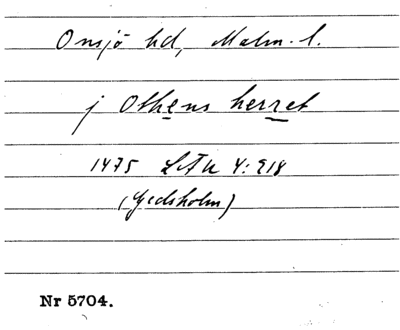 Onsjö hd, Malm. l.
j Othens herret
1475 LÅU 4:218
(Gedsholm)
Nr 5704.